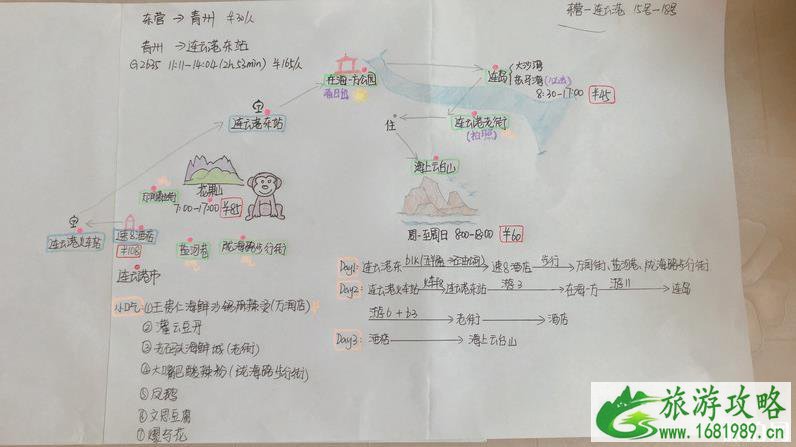 东营 → 青州 ¥30/人
东营-连云港 15号-18号
青州 → 连云港东站
G2635 11:11-14:04(2h53min) ¥165/人
在海一方公园
看日出
连岛
大沙湾
8:30-17:00 ¥45
连云港东站
连云港老街
(拍照)
住
海上云台山
周一至周日 8:00-18:00 ¥60
花果山
7:00-17:00 ¥85
连云港火车站
速8酒店
¥108
盐河巷
陇海路步行街
连云港市
Day1: 连云港东 → 速8酒店 步行 → 万润街、盐河巷、陇海路步行街
Day2: 连云港火车站 → 连云港东站 游3 → 在海一方 游11 → 连岛
游6+b3 → 老街 → 酒店
Day3: 酒店 → 海上云台山
小吃:
②灌云豆丹
③老码头海鲜城(老街)
④大嘴巴酸辣粉(陇海路步行街)
⑤风鹅
⑥文思豆腐
⑦爆乌花
旅游攻略
www.1681989.cn